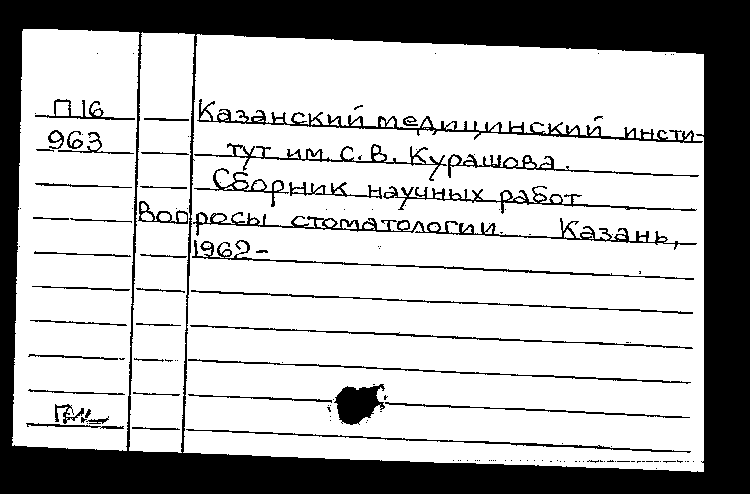 П16
963
Казанский медицинский инсти-
тут им. С.В. Курашова.
Сборник научных работ
Вопросы стоматологии. Казань,
1962-